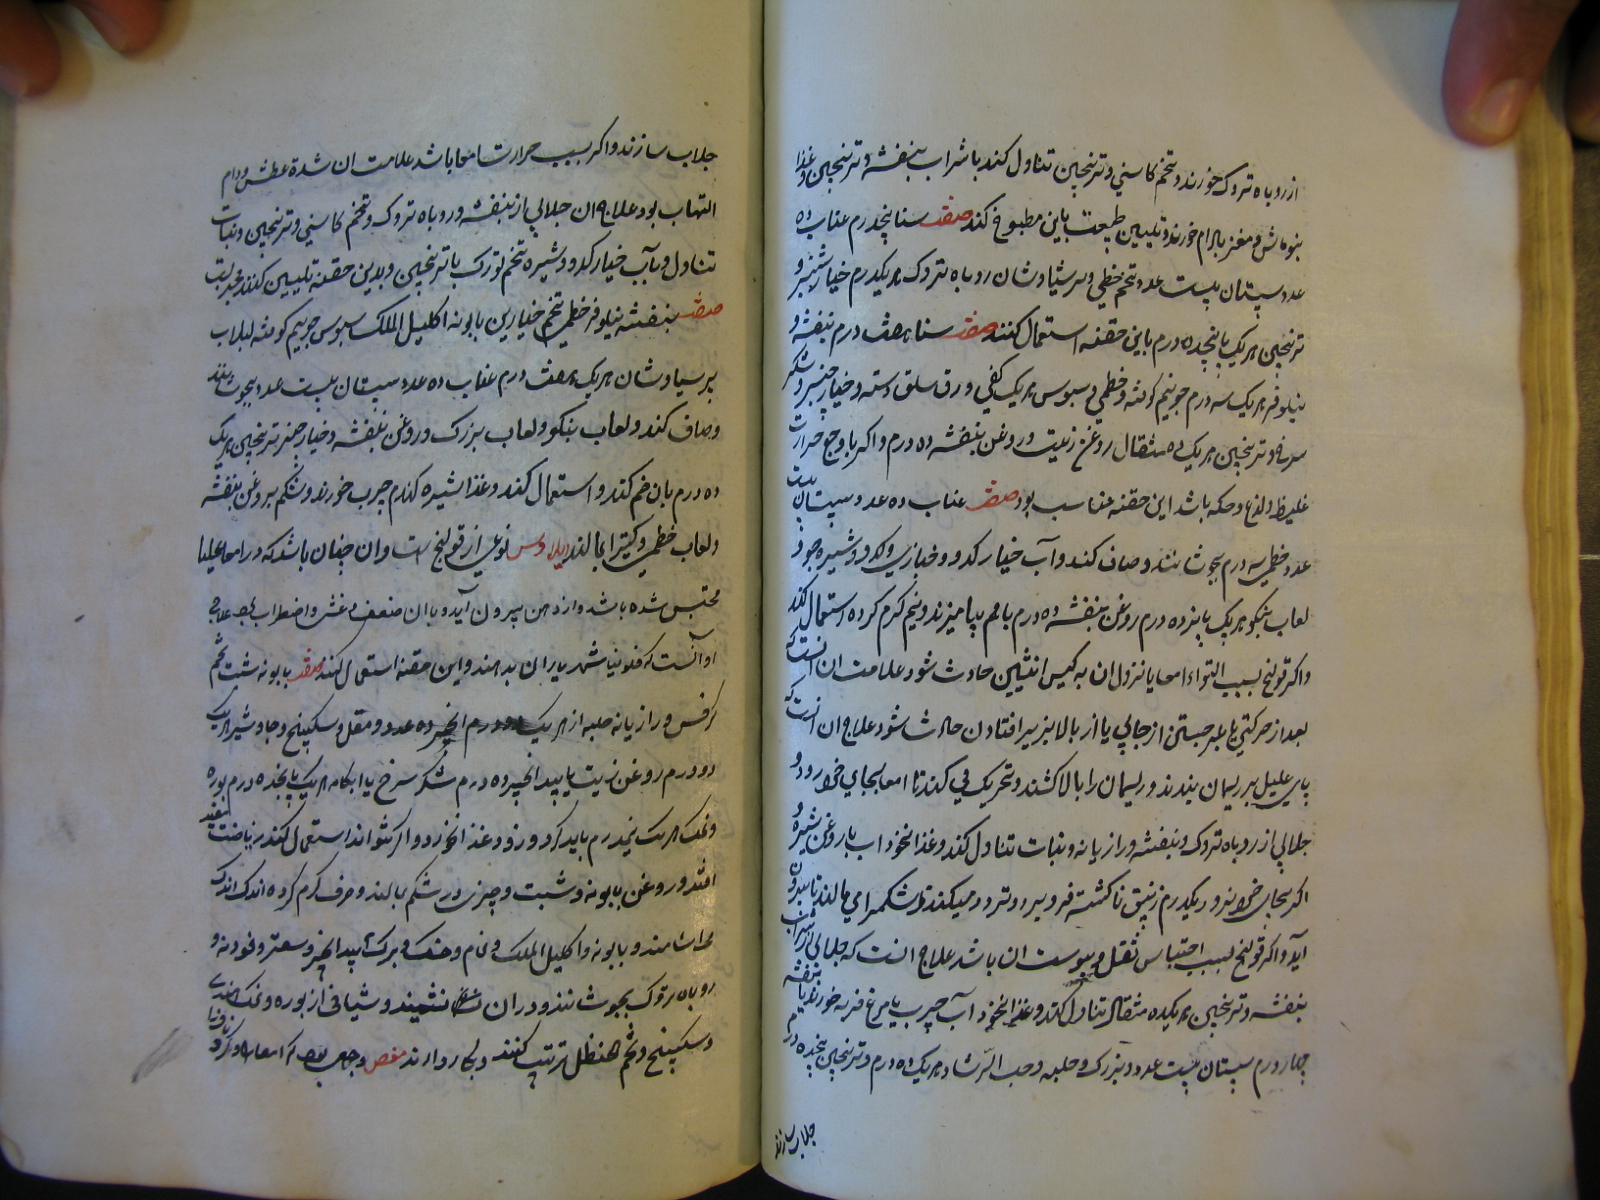 از روباه تروک خورند و تخم کاسنی و ترنجبین تناول کند با شراب بنفشه و ترنجبین و غذا
بنوماش و مغز بادام خورند و تلیین طبیعت باین مطبوخ کند صفت سنا پنجدرم عناب ده
عدد سپستان بیست عدد تخم خطمی و پرسیاوشان روباه تروک هر یکدرم خیارشنبر و
ترنجبین هر یک پانجده درم باین حقنه استعمال کنند صفت سنا هفت درم بنفشه و
نیلوفر هر یک سه درم جو نیم کوفته و خطمی و سبوس هر یک کفی ورق سلق دسته و خیارچنبر و شکر
سرخ و ترنجبین هر یک ده مثقال روغن زیت و روغن بنفشه ده درم و اکر با وجع حرارت
غلیظ و لذع و حکه باشد این حقنه مناسب بود صفت عناب ده عدد سپستان بیست
عدد خطمی سه درم بجوشانند و صاف کند و آب خیار کدو و خبازی و شیره جو و
لعاب بنکو هر یک پانزده درم روغن بنفشه ده درم با هم بیامیزند و نیم کرم کرده استعمال کند
و اکر قولنج بسبب التواء امعا یا نزول ان به کیس انثیین حادث شود علامت ان انست که
بعد از حرکتی یا بر جستن از جایی یا از بالا بزیر افتادن حادث شود علاج ان انست که
پای علیل بر ریسمان بندند و ریسمان را بالا کشند و تحریک می کند تا امعا بجای خود رود و
جلابی از روباه تروک و بنفشه و رازیانه و نبات تناول کند و غذا نخوداب با روغن شیره
اکر بجای خود نرود یکدرم زیبق ناکشته فرو برد و تردد میکند و شکم را می مالند تا بیرون
آید و اکر قولنج بسبب احتباس ثقل و یبوست ان باشد علاج انست که جلابی از شراب
بنفشه و ترنجبین هر یکده مثقال تناول کند و غذا نخود آب چرب با مرغ فربه خورند یا بنفشه
چهار درم سپستان بیست عدد و بزرک و حلبه و حب الرشاد هر یک ده درم و ترنجبین پنجده درم
جلاب سازند
جلاب سازند و اکر بسبب حرارت امعا باشد علامت ان شدة عطش و دوام
التهاب بود علاج ان جلابی از بنفشه و روباه تروک و تخم کاسنی و ترنجبین و نبات
تناول و بآب خیار کدو و شیره تخم تورک با ترنجبین و بدین حقنه تلیین کنند
صفت بنفشه نیلوفر خطمی تخم خیارین بابونه اکلیل الملک سبوس جو نیم کوفته لبلاب
پرسیاوشان هر یک هفت درم عناب ده عدد سپستان بیست عدد بجوشانند
و صاف کند و لعاب بنکو و لعاب بزرک و روغن بنفشه و خیارچنبر ترنجبین هر یک
ده درم بان ضم کند و استعمال کند و غذا شیره کندم چرب خورند و شکم بروغن بنفشه
و لعاب خطمی و کتیرا بمالند ایلاوس نوعی از قولنج است و ان چنان باشد که در امعا علیا
محتبس شده باشد و از دهن بیرون آید و با ان ضعف و غش و اضطراب بود علاج
او آنست که فلونیا بیاران بدهند و این حقنه استعمال کند صفت بابونه شبت تخم
کرفس و رازیانه حلبه از هر یک درم انجیر ده عدد و مقل و سکبینج و جاوشیر هر یک
دو درم روغن زیت یا بید انجیر ده درم شکر سرخ یا ابکامه هر یک پانجده درم بوره
و نمک هر یک نیمدرم باید کرد و زود غذا نخورد و اکر نتواند استعمال کند ریاضت
افتد و روغن بابونه و شبت و چیزی در شکم بمالند و عرف کرم کرده اندک اندک
می اشامند و بابونه و اکلیل الملک و نمام و برک بید انجیر و سعتر و فودنه و
روباه تروک بجوشانند و در ان نشینند و شیافی از بوره و نمک هندی
و سکبینج و تخم حنظل ترتیب کنند و بکار دارند مغص وجعی بود که امعا